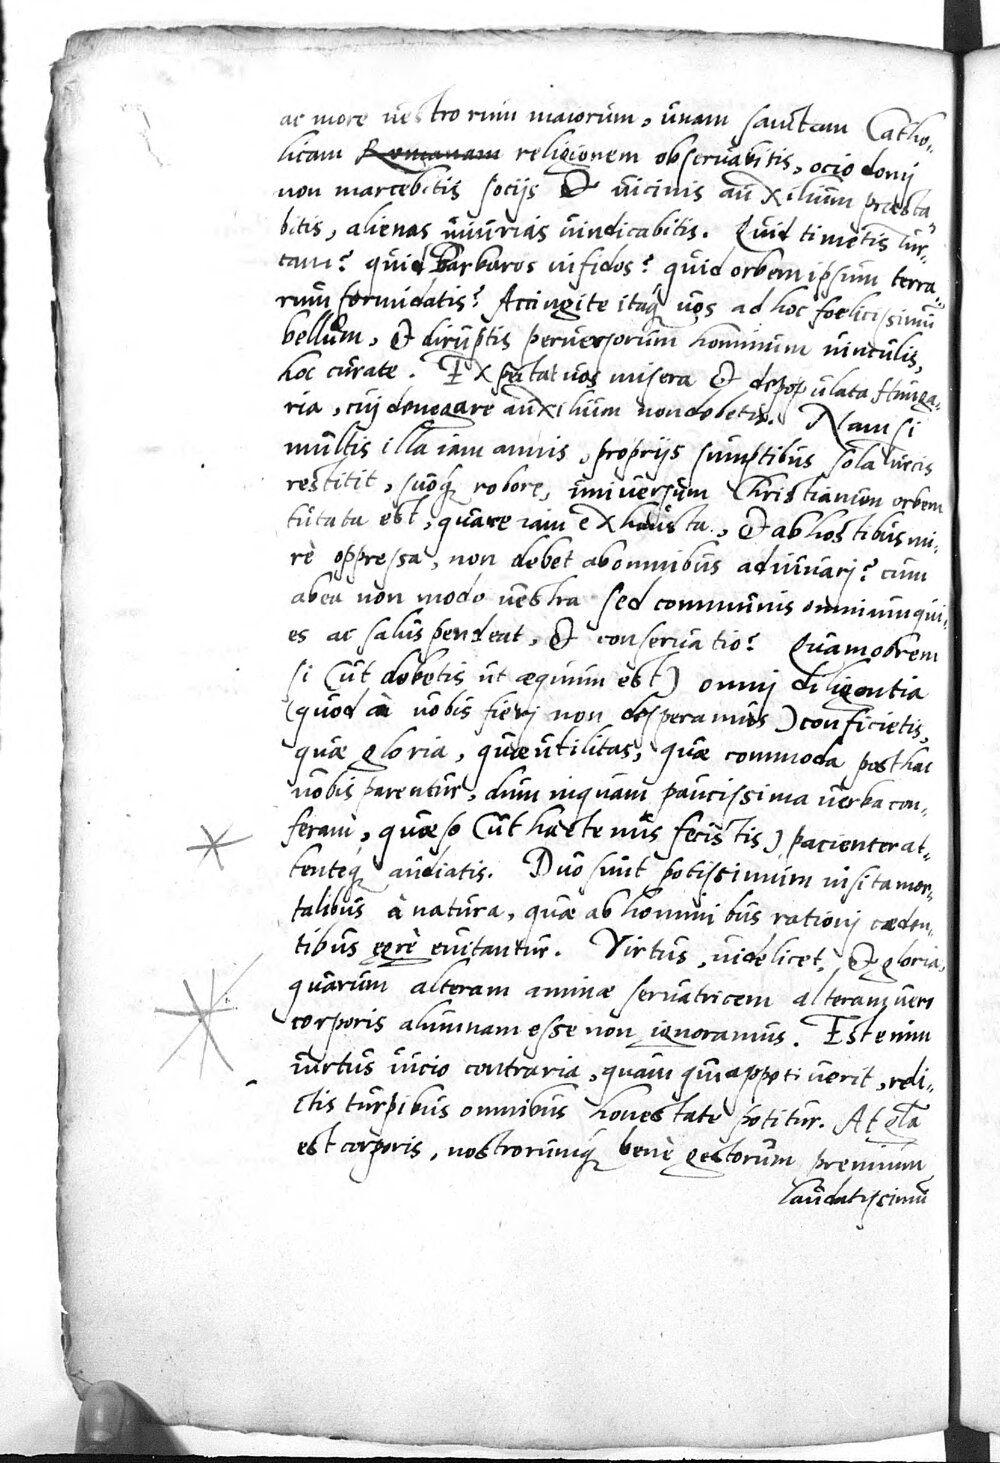 ac more uestrorum maiorum, unam sanctam Catho-
licam Romanam religionem obseruabitis, ocio domj
non marcebitis socijs & uicinis auxilium præsta
bitis, alienas iniurias uindicabitis. Quid timetis Tur-
cam? quid Barbaros infidos? quid orbem ipsum terra-
rum formidatis? Accingite itaq; uos ad hoc foelicissimū
bellum, & diruptis peruersorum hominum uinculis,
hoc curate. Expectat uos misera & depopulata Hunga-
ria, cuj denegare auxilium non debetis. Nam si
multis illa iam annis, proprijs sumptibus sola uecis
restitit, suoq; robore, uniuersum Christianum orbem
tutata est, quare iam exhausta, & ab hostibus mi-
rè oppressa, non debet ab omnibus adiuuarj? cum
ab ea non modo uestra sed communis omnium qui-
es ac salus pendeat, & conseruatio? Quamobrem
si (ut debetis ut æquum est) omnj diligentia
(quod à uobis fierj non desperamus) conficietis,
quæ gloria, quæ utilitas, quæ commoda posthac
uobis parentur, dum inquam paucissima uerba con-
feram, quæso (ut hactenus fecistis) pacienter at-
tenteq; audiatis. Duo sunt potissimum insita mor-
talibus à natura, quæ ab hominibus rationj cæden-
tibus egrè euitantur. Virtus, uidelicet, & gloria,
quarum alteram animæ seruatricem alteram uero
corporis alumnam esse non ignoramus. Est enim
uirtus uicio contraria, quam qui appetiuerit, reli-
ctis turpibus omnibus honestate potitur. At gl̄a
est corporis, nostrorumq; benè gestorum premium
laudatissimū